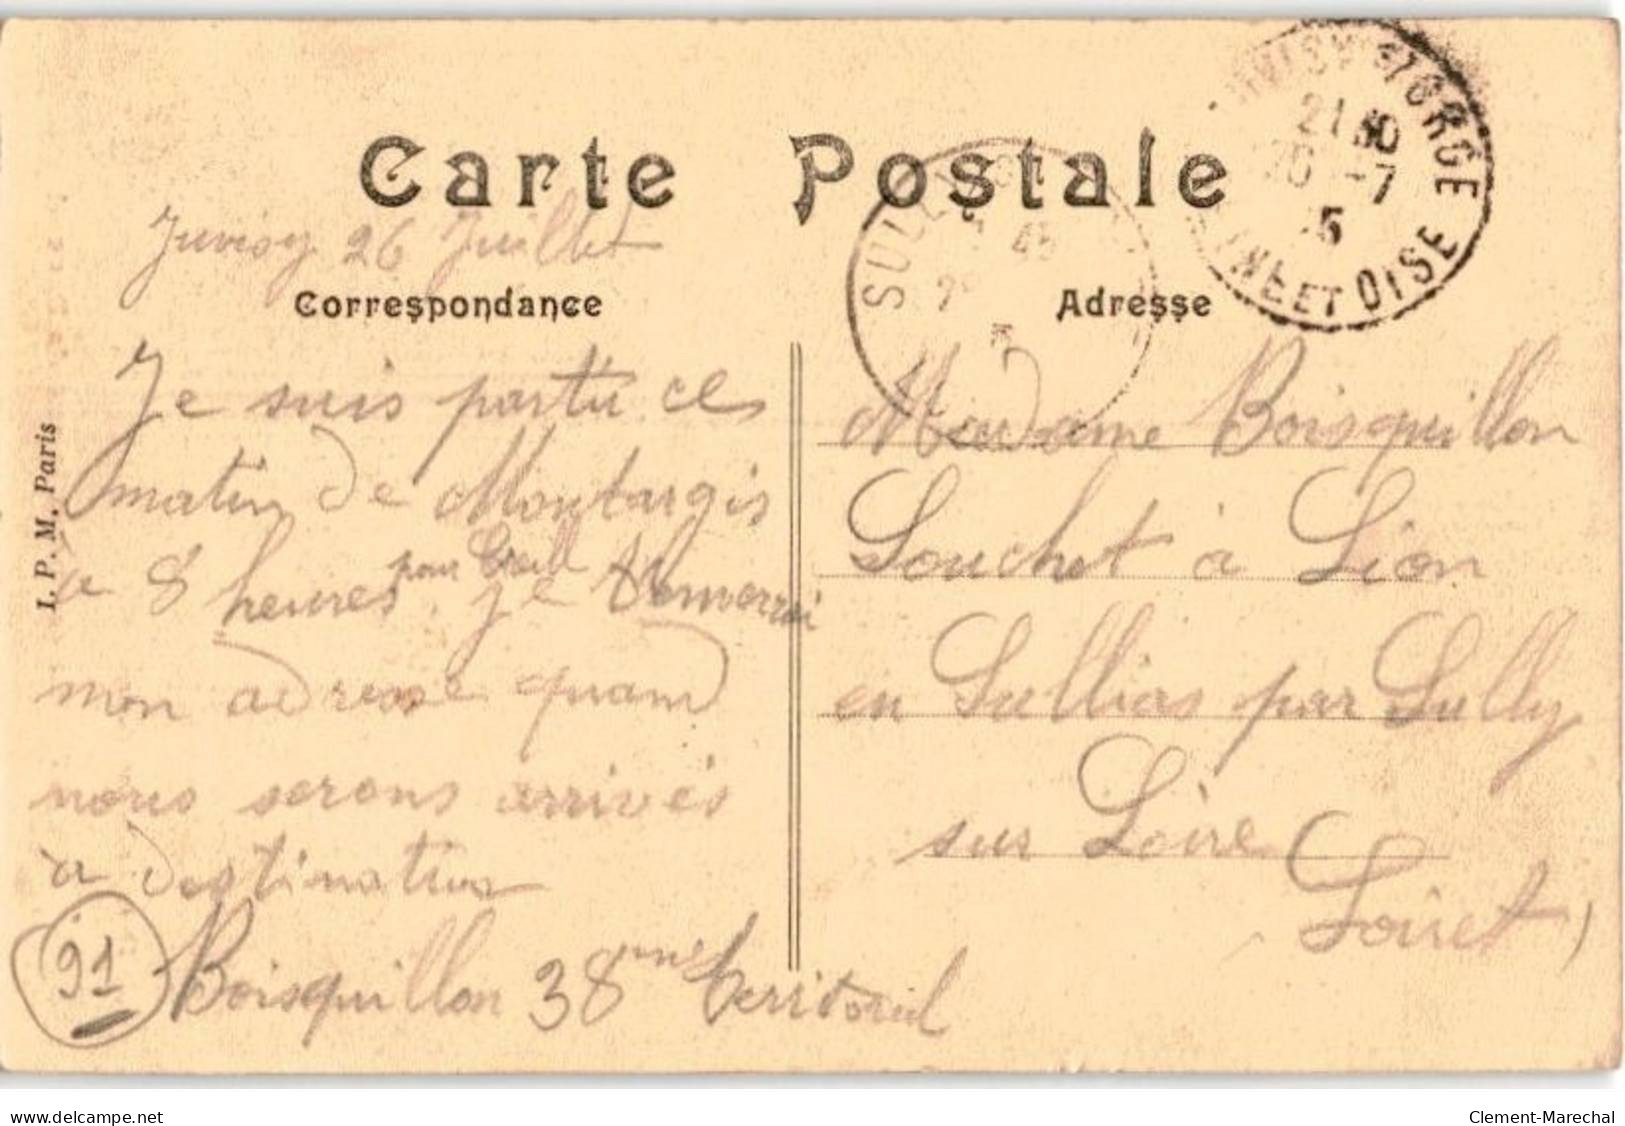 Carte Postale
Juvisy 26 Juillet
Correspondance
Je suis partu ce
matin de Montargis
à 8 heures pour Creill je
mon adresse quand
nous serons arrivés
à destination
Boisquillon 38eme territorial
91
I. P. M. Paris
ORGE
21 30
-7
5
SEINE ET OISE
SULLY
45
5
Adresse
Madame Boisquillon
Souchet à Lion
en Sullias par Sully
sur Loire
Loiret)
www.delcampe.net
Clement-Marechal